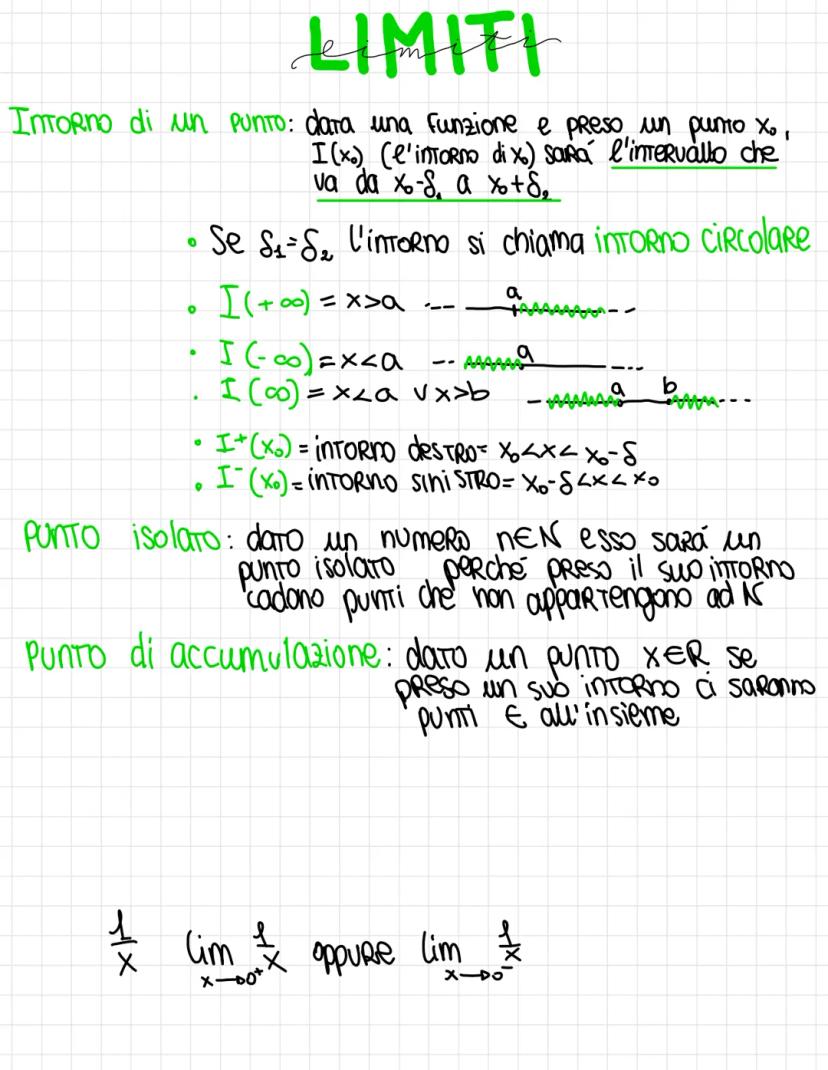 LIMITI
limiti
Intorno di un punto: data una funzione e preso un punto x₀,
I(x₀) (l'intorno di x₀) sará l'intervallo che
va da x₀-δ₁ a x₀+δ₂
• Se δ₁=δ₂ l'intorno si chiama intorno circolare
• I(+∞) = x>a --- a ---
• I(-∞) = x<a -- a ---
• I(∞) = x<a ∨ x>b - a b ---
• I⁺(x₀) = intorno destro= x₀<x< x₀-δ
• I⁻(x₀) = intorno sinistro= x₀-δ<x<x₀
Punto isolato: dato un numero n∈N esso sará un
punto isolato perché preso il suo intorno
cadono punti che non appartengono ad N
Punto di accumulazione: dato un punto x∈R se
preso un suo intorno ci saranno
punti ∈ all'insieme
1/x lim x→0⁺ 1/x oppure lim x→0⁻ 1/x